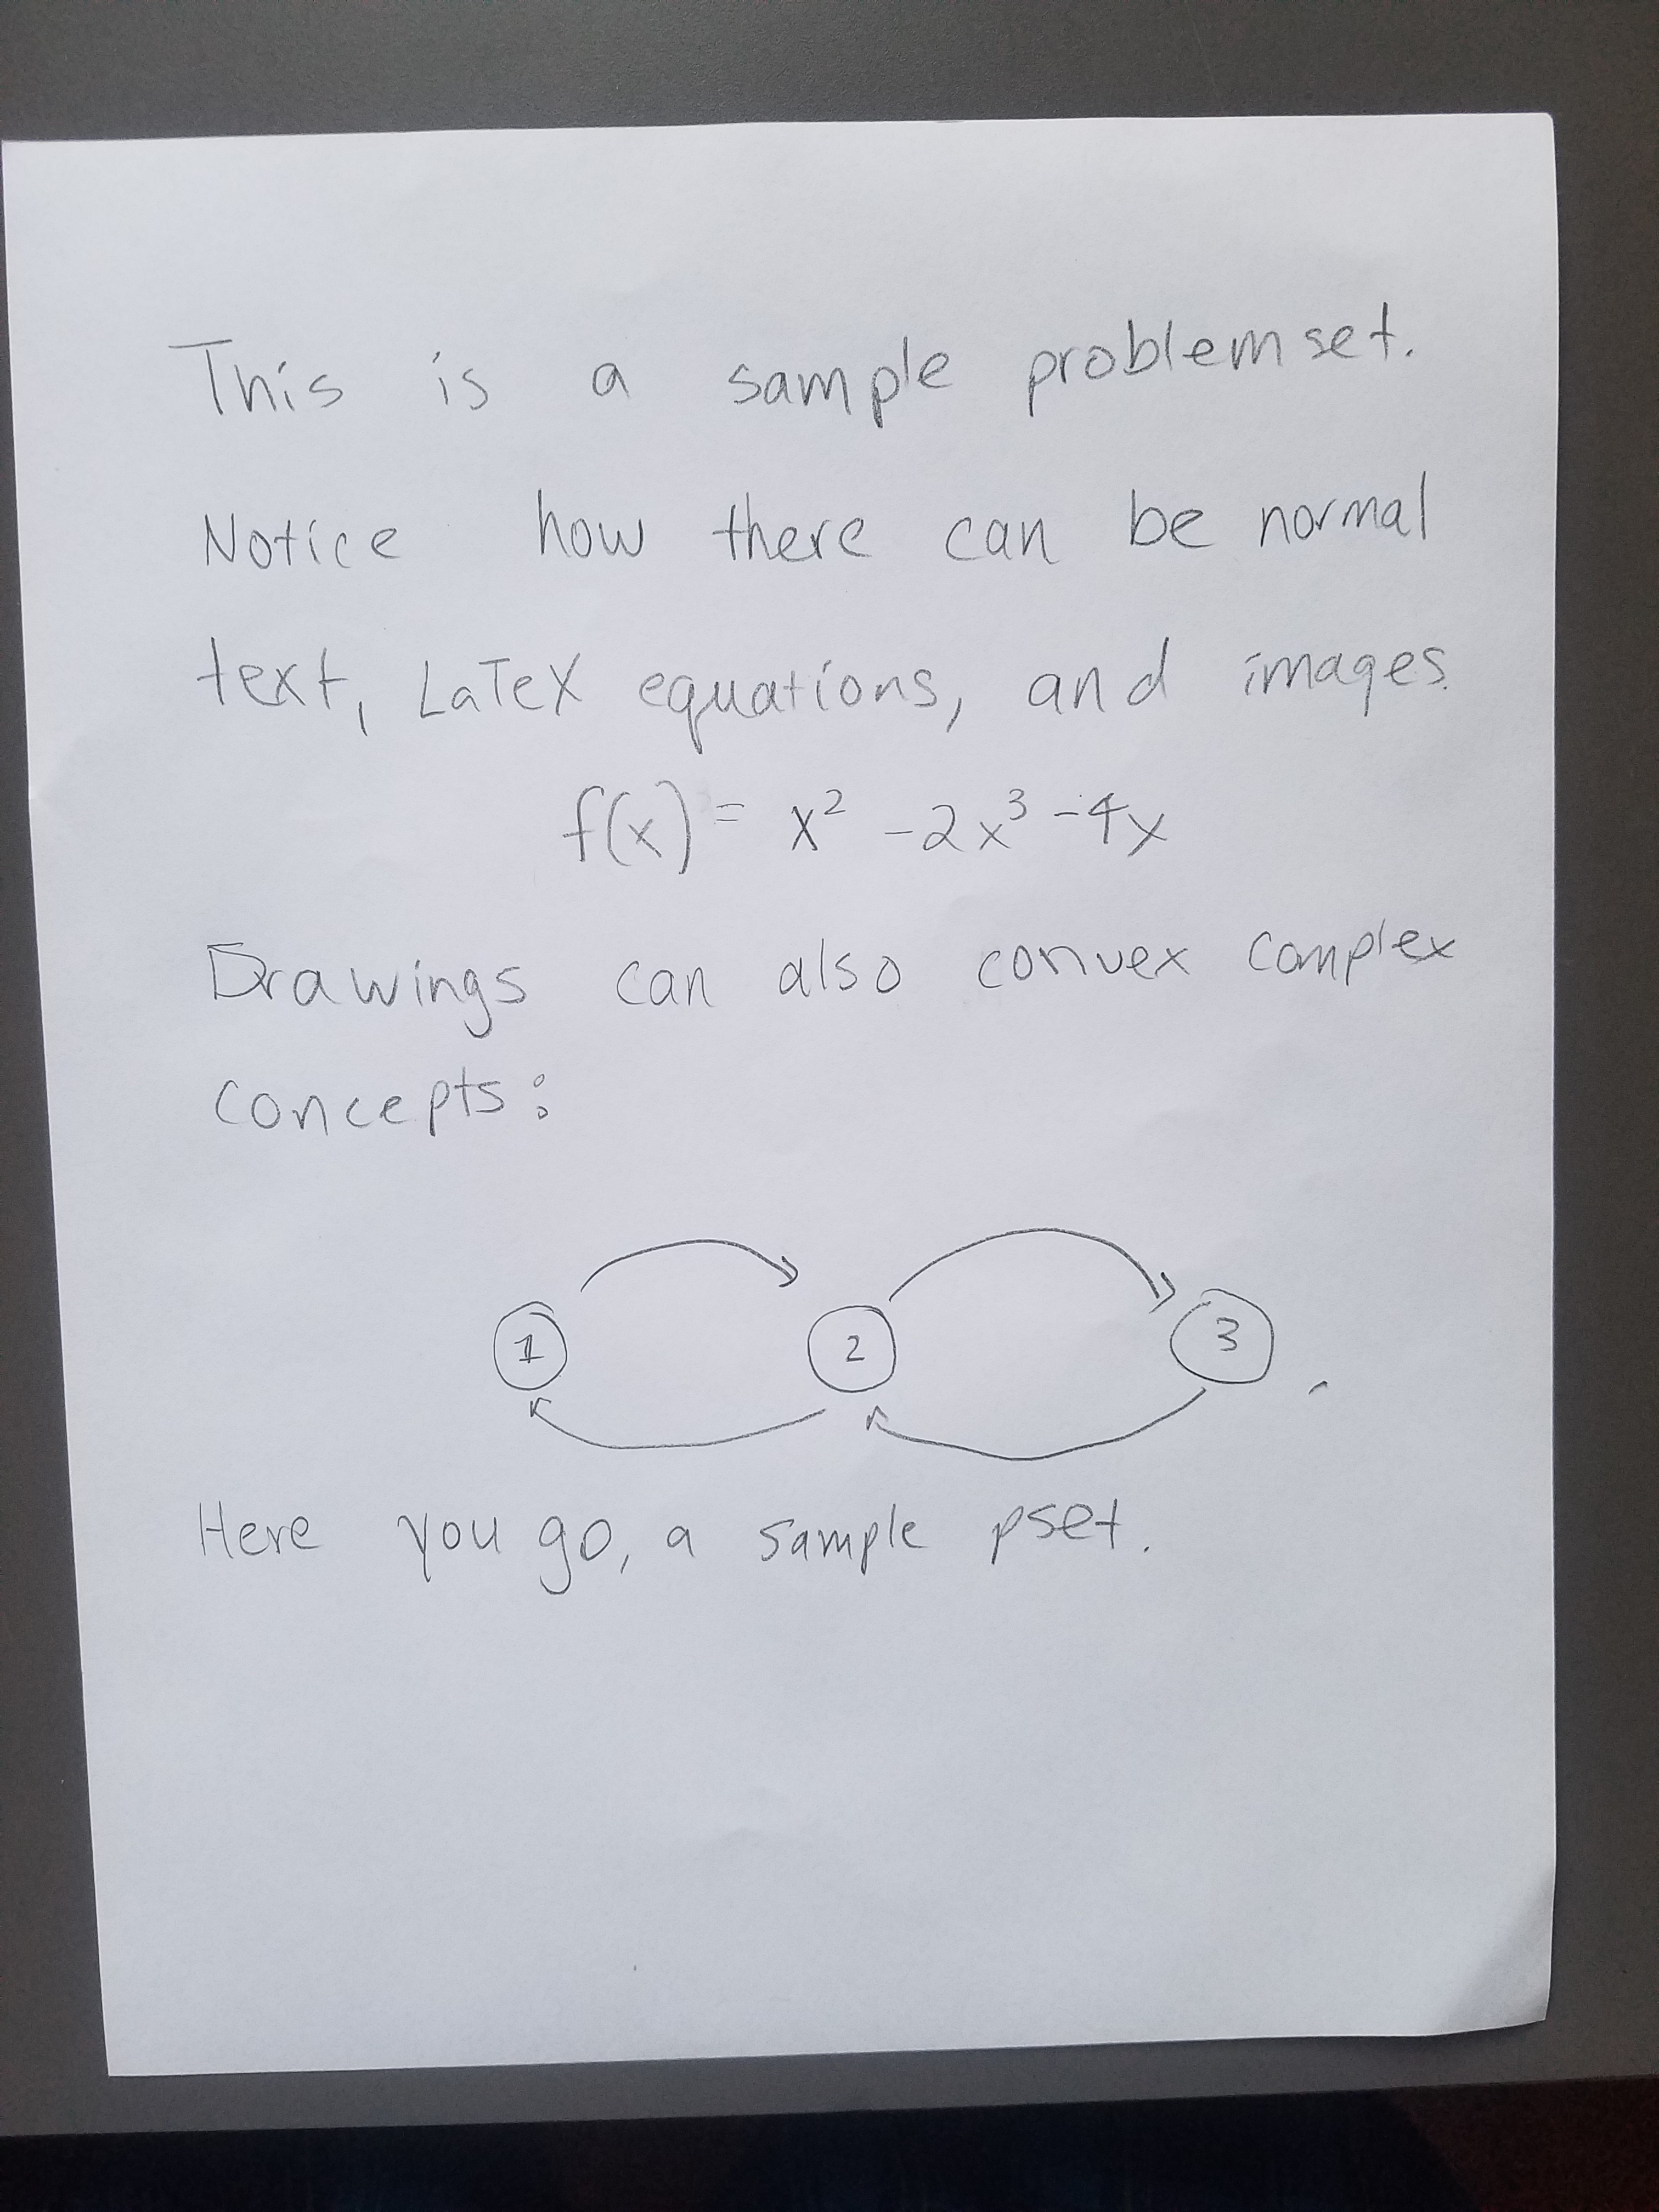 This is a sample problem set.
Notice how there can be normal
text, LaTeX equations, and images.
f(x) = x² - 2x³ - 4x
Drawings can also convex complex
concepts:
1 2 3
Here you go, a sample pset.